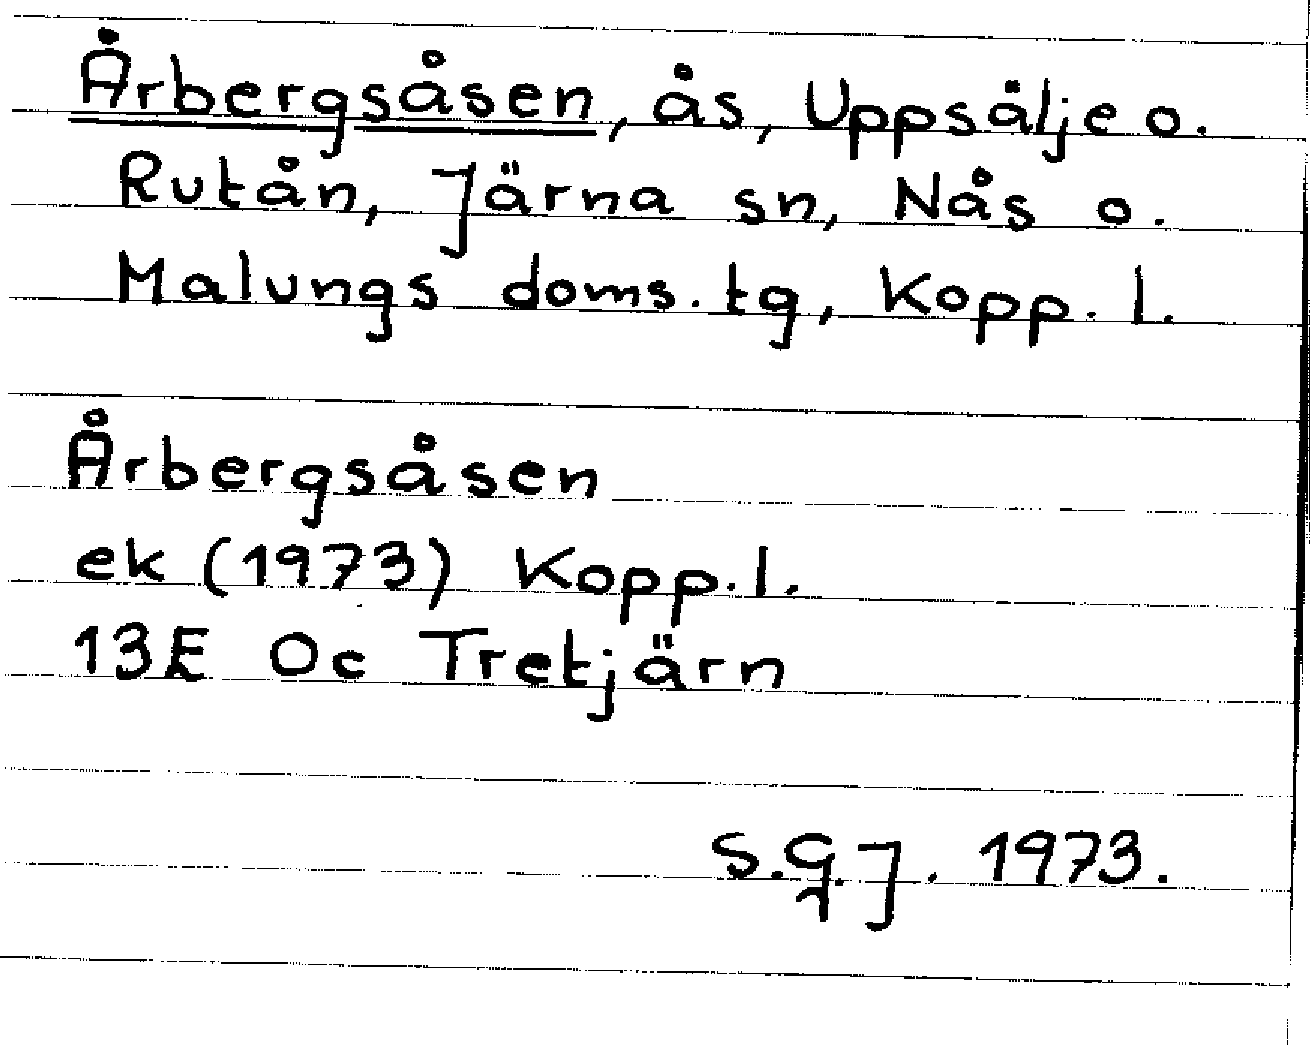 Årbergsåsen, ås, Uppsälje o.
Rutån, Järna sn, Nås o.
Malungs doms. tg, Kopp. l.
Årbergsåsen
ek (1973) Kopp. l.
13E 0c Tretjärn
S.G.J. 1973.